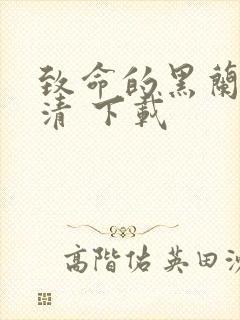 致命的黑蘭
清 下載
高階佑英田沙